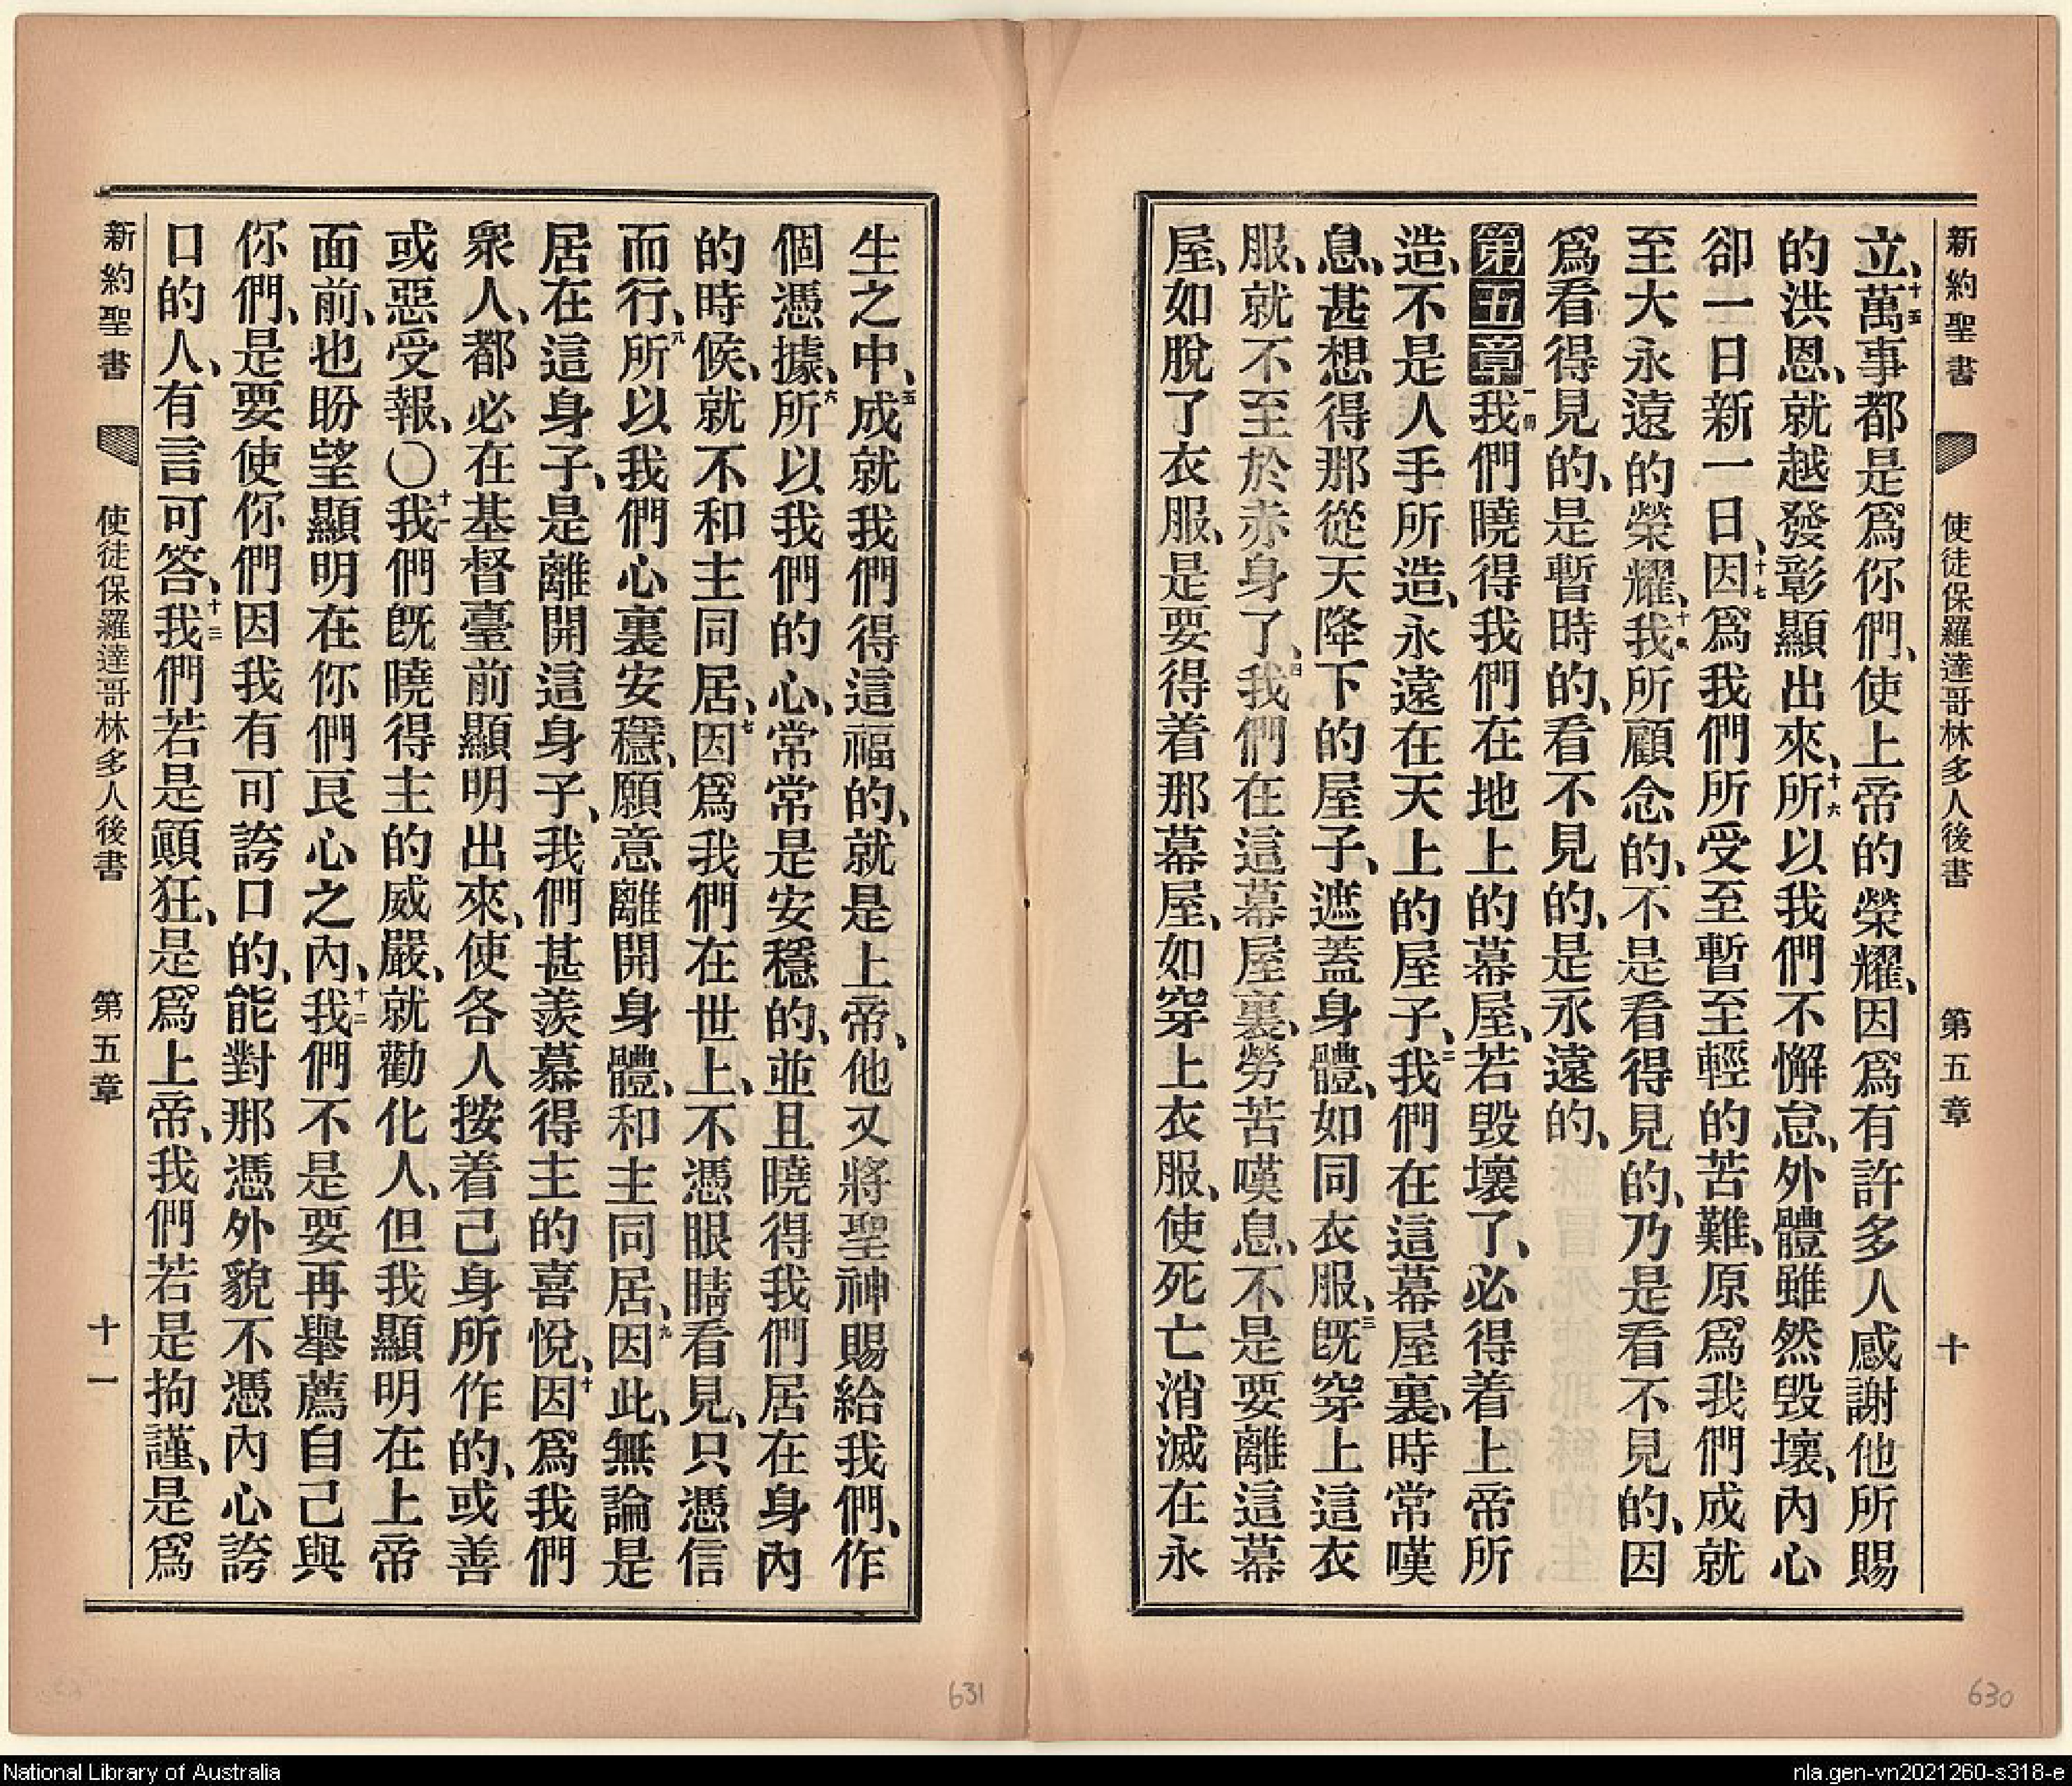 新約聖書 使徒保羅達哥林多人後書 第五章 十
立、十五萬事都是爲你們、使上帝的榮耀、因爲有許多人感謝他所賜
的洪恩、就越發彰顯出來、十六所以我們不懈怠、外體雖然毀壞、內心
卻一日新一日、十七因爲我們所受至暫至輕的苦難、原爲我們成就
至大永遠的榮耀、十八我所顧念的、不是看得見的、乃是看不見的、因
爲看得見的、是暫時的、看不見的、是永遠的、
第五章一節我們曉得我們在地上的幕屋、若毀壞了、必得着上帝所
造、不是人手所造、永遠在天上的屋子、二我們在這幕屋裏、時常嘆
息、甚想得那從天降下的屋子、遮蓋身體、如同衣服、三旣穿上這衣
服、就不至於赤身了、四我們在這幕屋裏、勞苦嘆息、不是要離這幕
屋、如脫了衣服、是要得着那幕屋、如穿上衣服、使死亡消滅在永
生之中、五成就我們得這福的、就是上帝、他又將聖神賜給我們、作
個憑據、六所以我們的心、常常是安穩的、並且曉得我們居在身內
的時候、就不和主同居、七因爲我們在世上、不憑眼睛看見、只憑信
而行、八所以我們心裏安穩、願意離開身體、和主同居、九因此、無論是
居在這身子、是離開這身子、我們甚羨慕得主的喜悅、十因爲我們
衆人、都必在基督臺前顯明出來、使各人按着己身所作的、或善
或惡受報、〇十一我們旣曉得主的威嚴、就勸化人、但我顯明在上帝
面前、也盼望顯明在你們良心之內、十二我們不是要再舉薦自己與
你們、是要使你們因我有可誇口的、能對那憑外貌不憑內心誇
口的人、有言可答、十三我們若是顚狂、是爲上帝、我們若是拘謹、是爲
新約聖書 使徒保羅達哥林多人後書 第五章 十一
631
630
National Library of Australia
nla.gen-vn2021260-s318-e